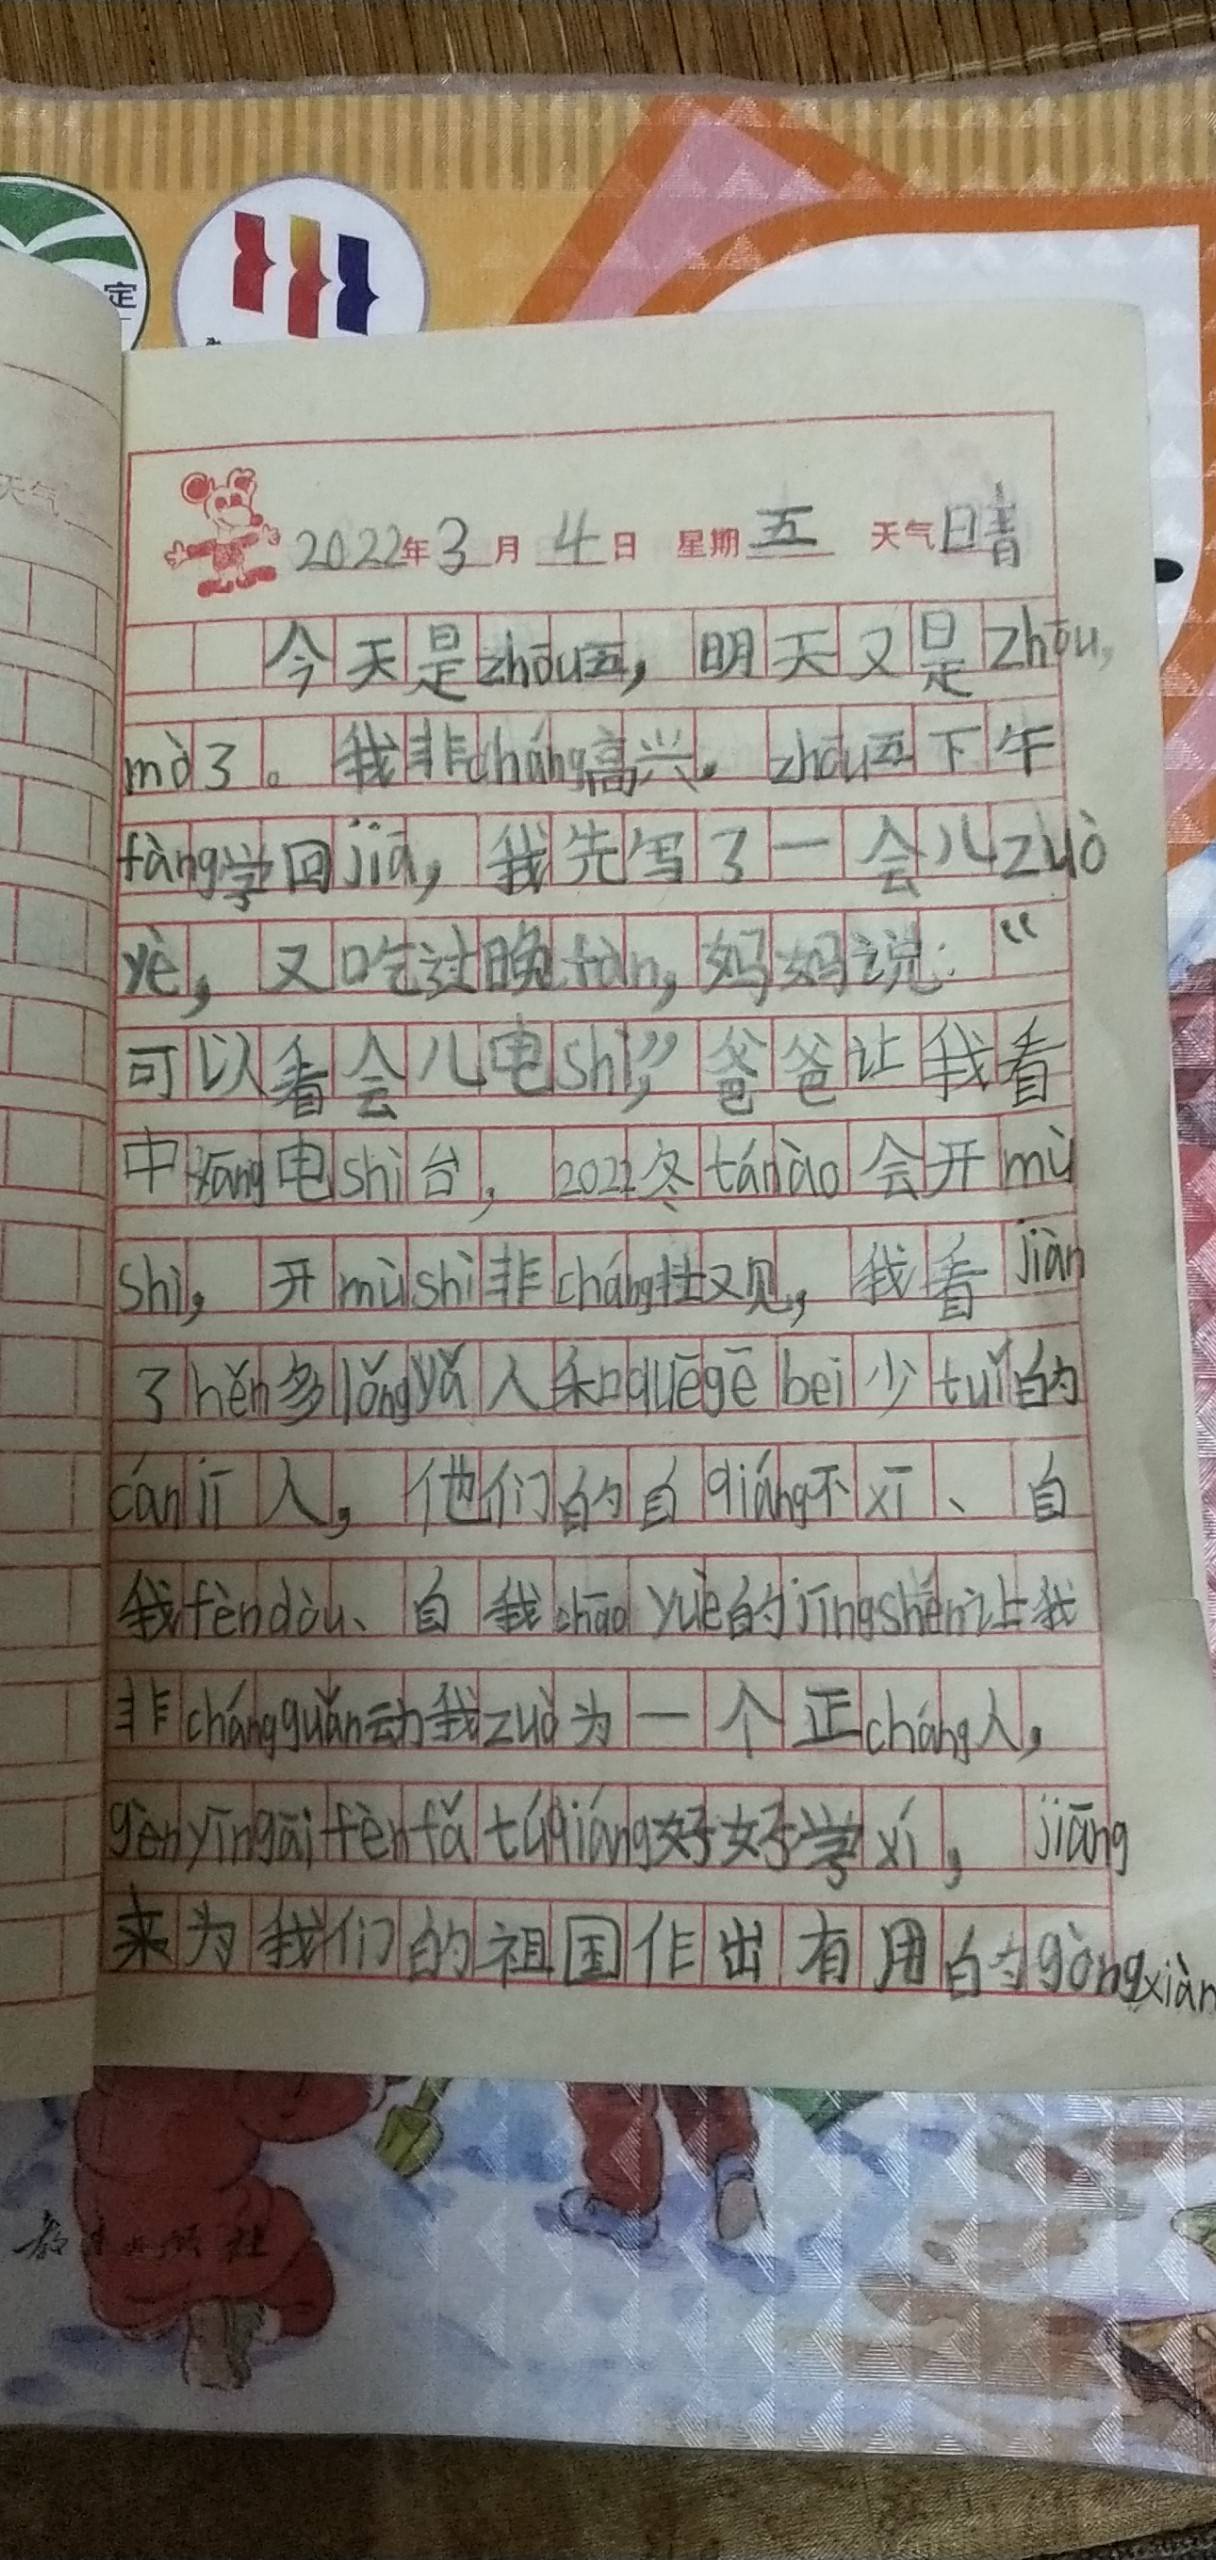 定
天气
2022年3月4日 星期五 天气晴
今天是zhōu五，明天又是zhōu,
mò了。我非cháng高兴。zhōu五下午
fàng学回jiā，我先写了一会儿zuò
yè，又吃过晚fàn，妈妈说：“
可以看会儿电shì，”爸爸让我看
中yāng电shì台，2022冬tánào会开mù
shì，开mùshì非cháng壮观，我看jiàn
了hěn多lǒngyǎ人和quēgē bei少tuǐ的
cánjī人，他们的自qiáng不xī、自
我fèndòu、自我chāo yuè的jīngshén让我
非chánggǔan动我zuò为一个正cháng人，
gènyīngāifènfǎ túqiáng好好学xí，jiāng
来为我们的祖国作出有用的gòngxiàn